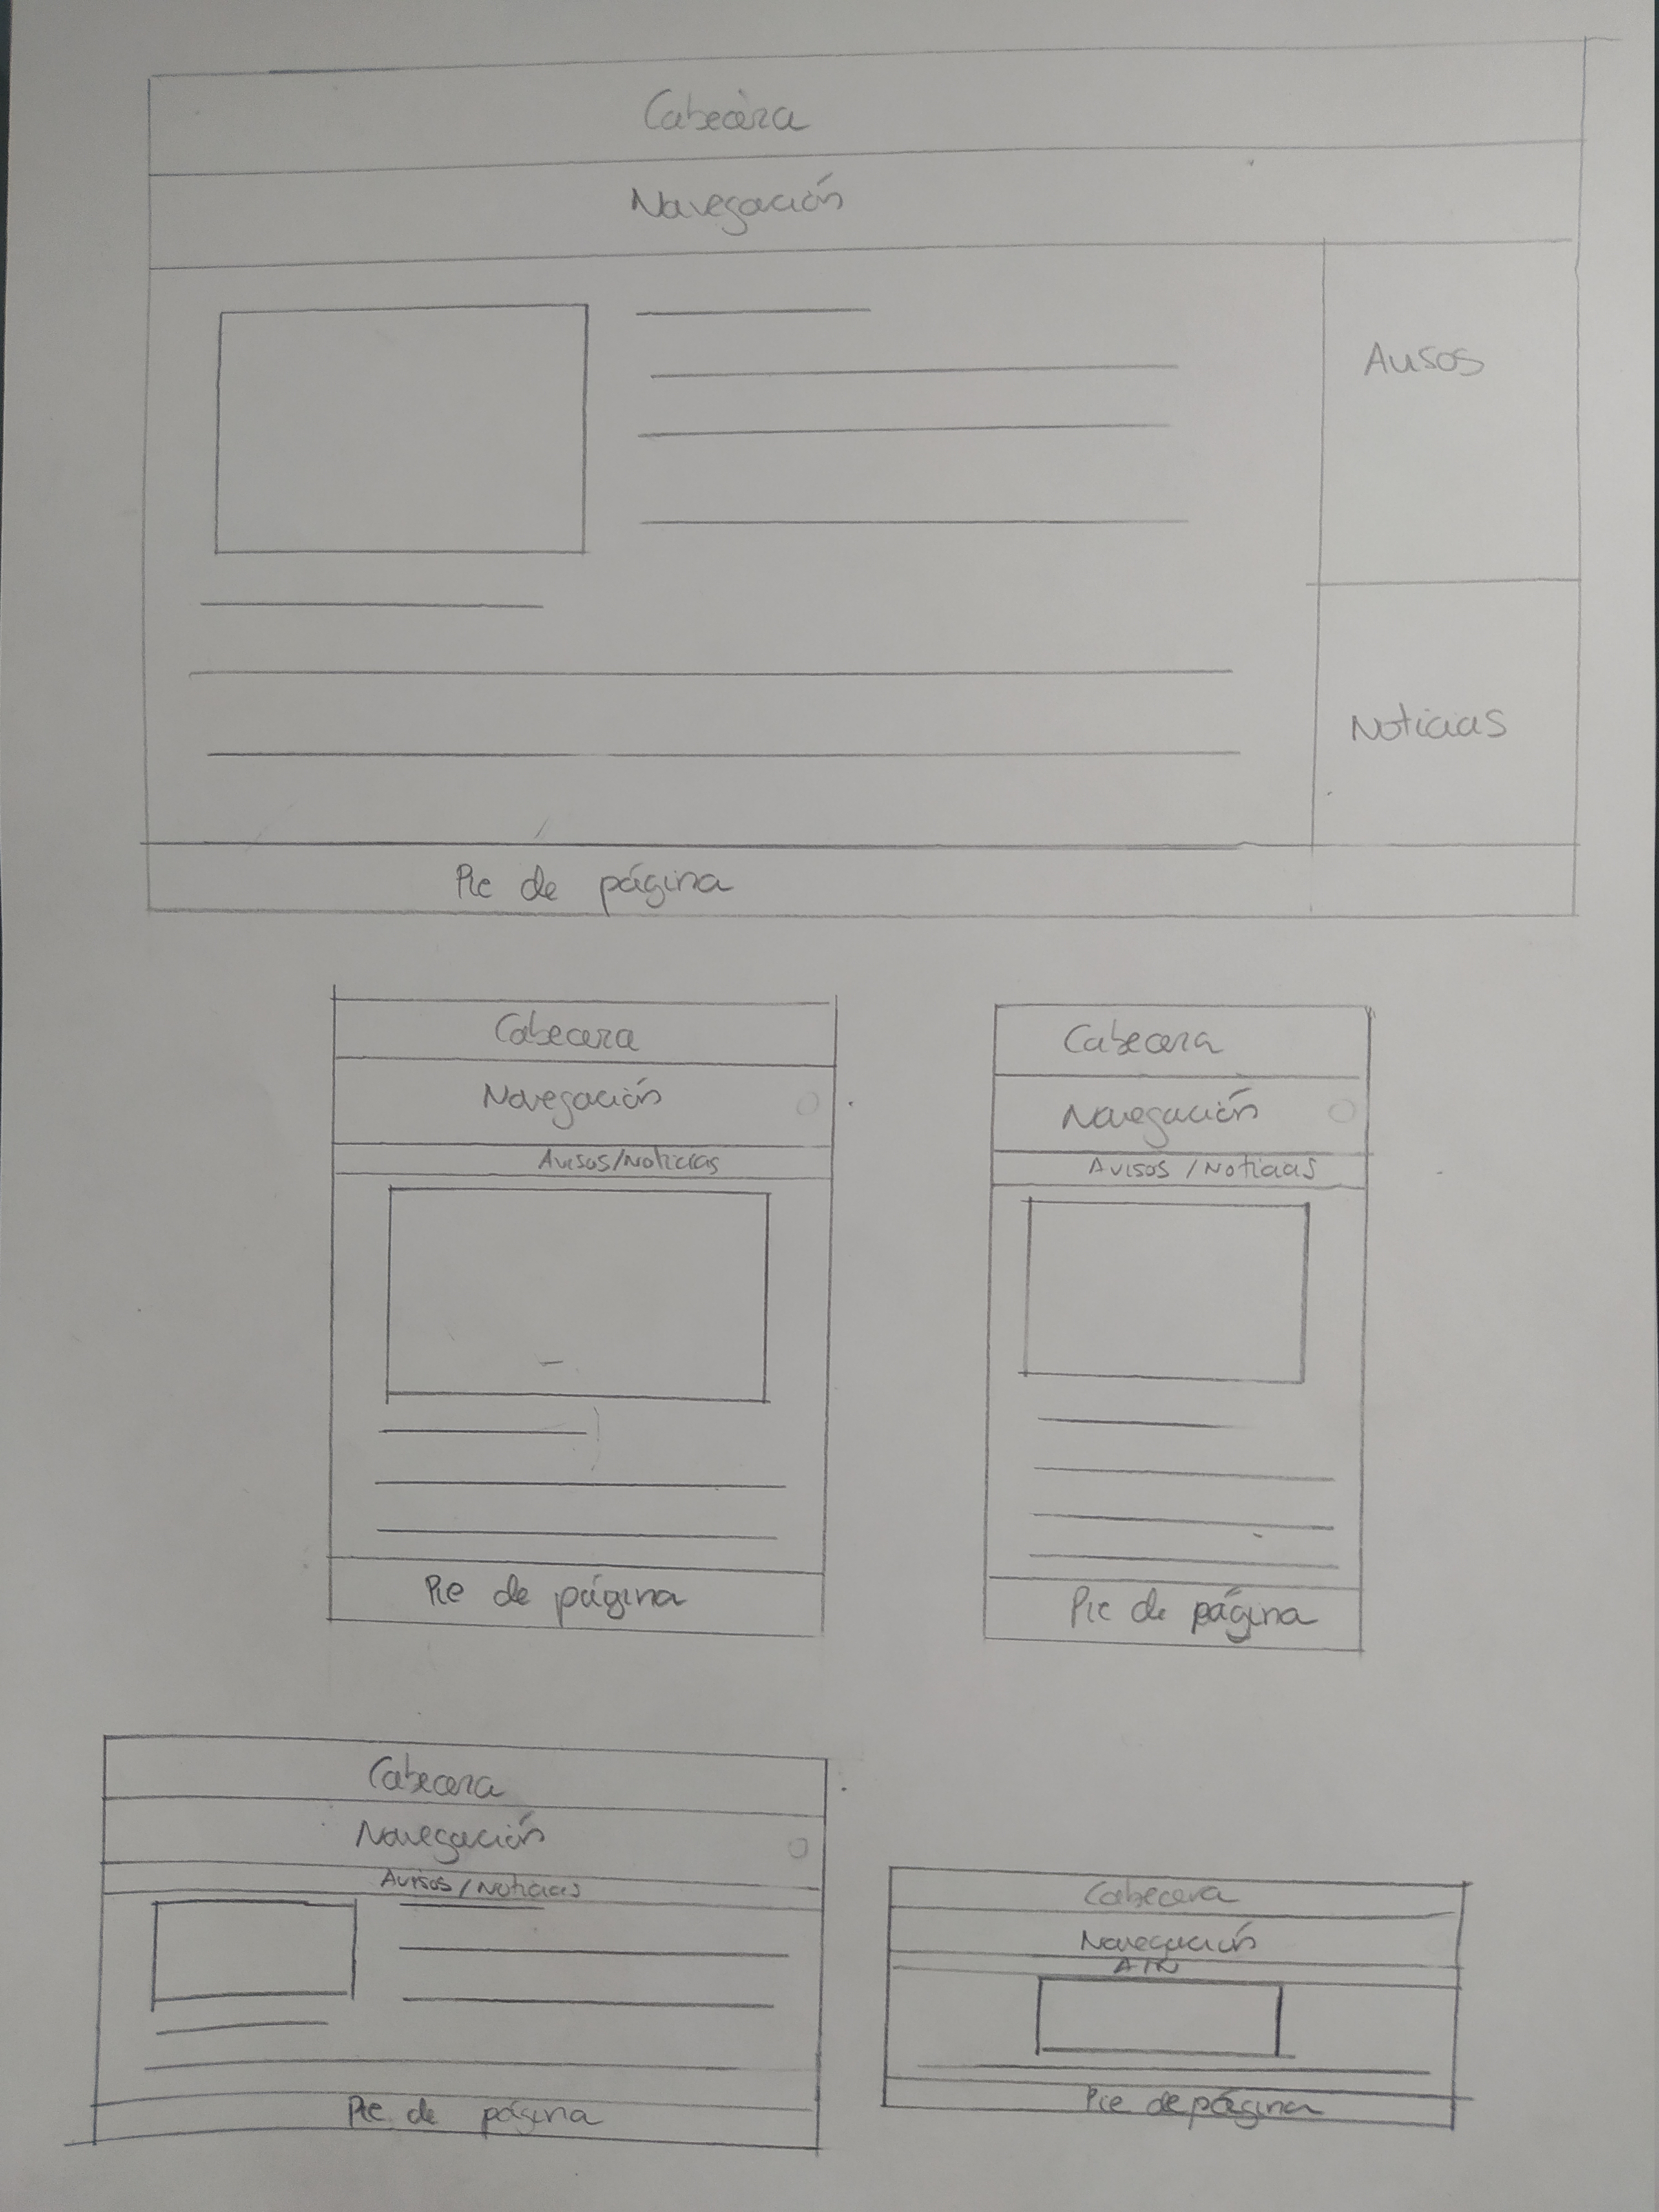 Cabecera
Navegación
Avisos
Noticias
Pie de página
Cabecera
Navegación
Avisos/Noticias
Pie de página
Cabecera
Navegación
Avisos / Noticias
Pie de página
Cabecera
Navegación
Avisos/Noticias
Pie de página
Cabecera
Navegación
A/N
Pie de página